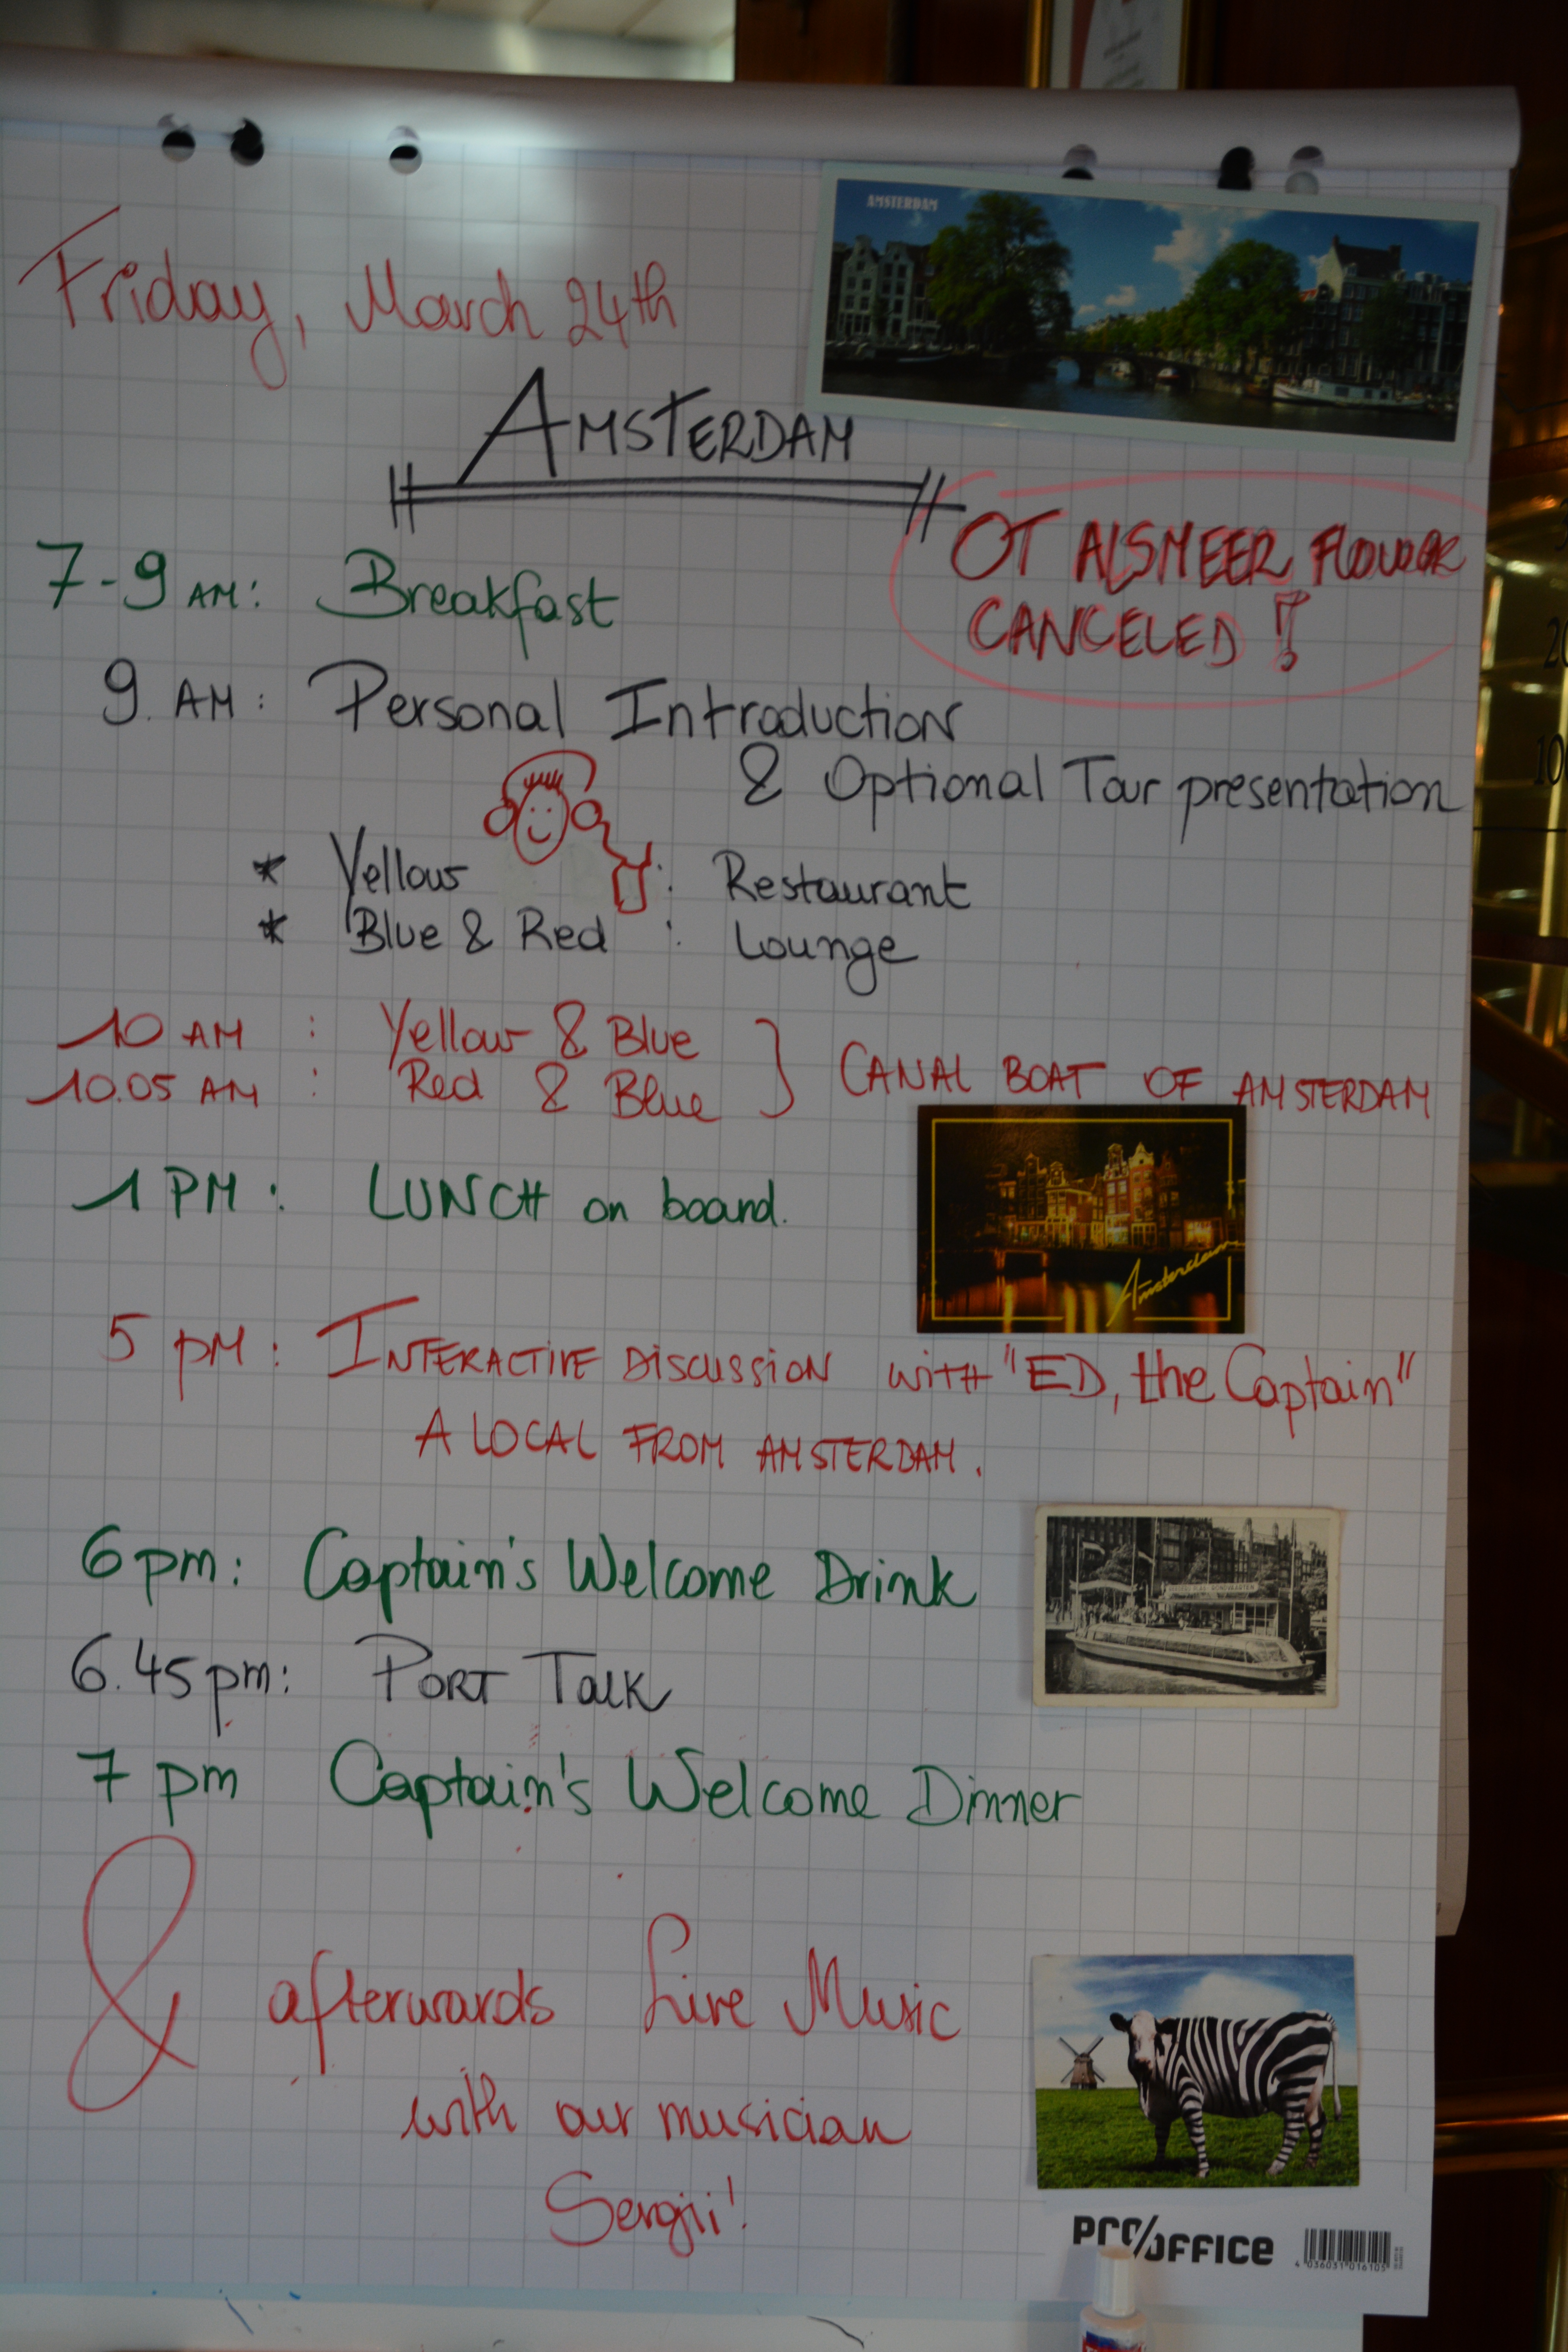 AMSTERDAM
Friday, March 24th
AMSTERDAM
OT AlSMEER FlOWER
CANCELED !
7-9 AM: Breakfast
9. AM: Personal Introduction
& Optional Tour presentation
* Yellow : Restaurant
* Blue & Red : Lounge
10 AM : Yellow & Blue
10.05 AM : Red & Blue } CANAL BOAT OF AMSTERDAM
1 PM : LUNCH on board.
Amsterdam
5 pM: INTERACTIVE DiSCUSSiON WiTH "ED, the Captain"
A LOCAL FROM AMSTERDAM.
6 pm: Captain's Welcome Drink
6.45 pm: PORT TALK
7 pm Captain's Welcome Dinner
& afterwards Live Music
with our musician
Sergii!
PRO/OFFICE
4 036031 016105